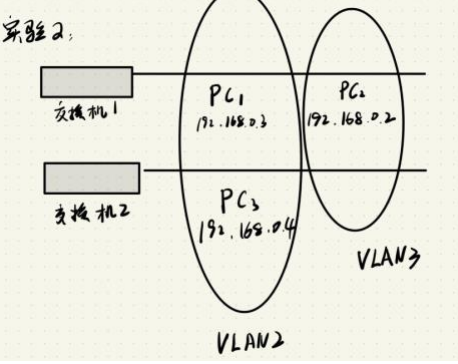 实验2:
交换机1
PC1
192.168.0.3
PC2
192.168.0.2
交换机2
PC3
192.168.0.4
VLAN3
VLAN2